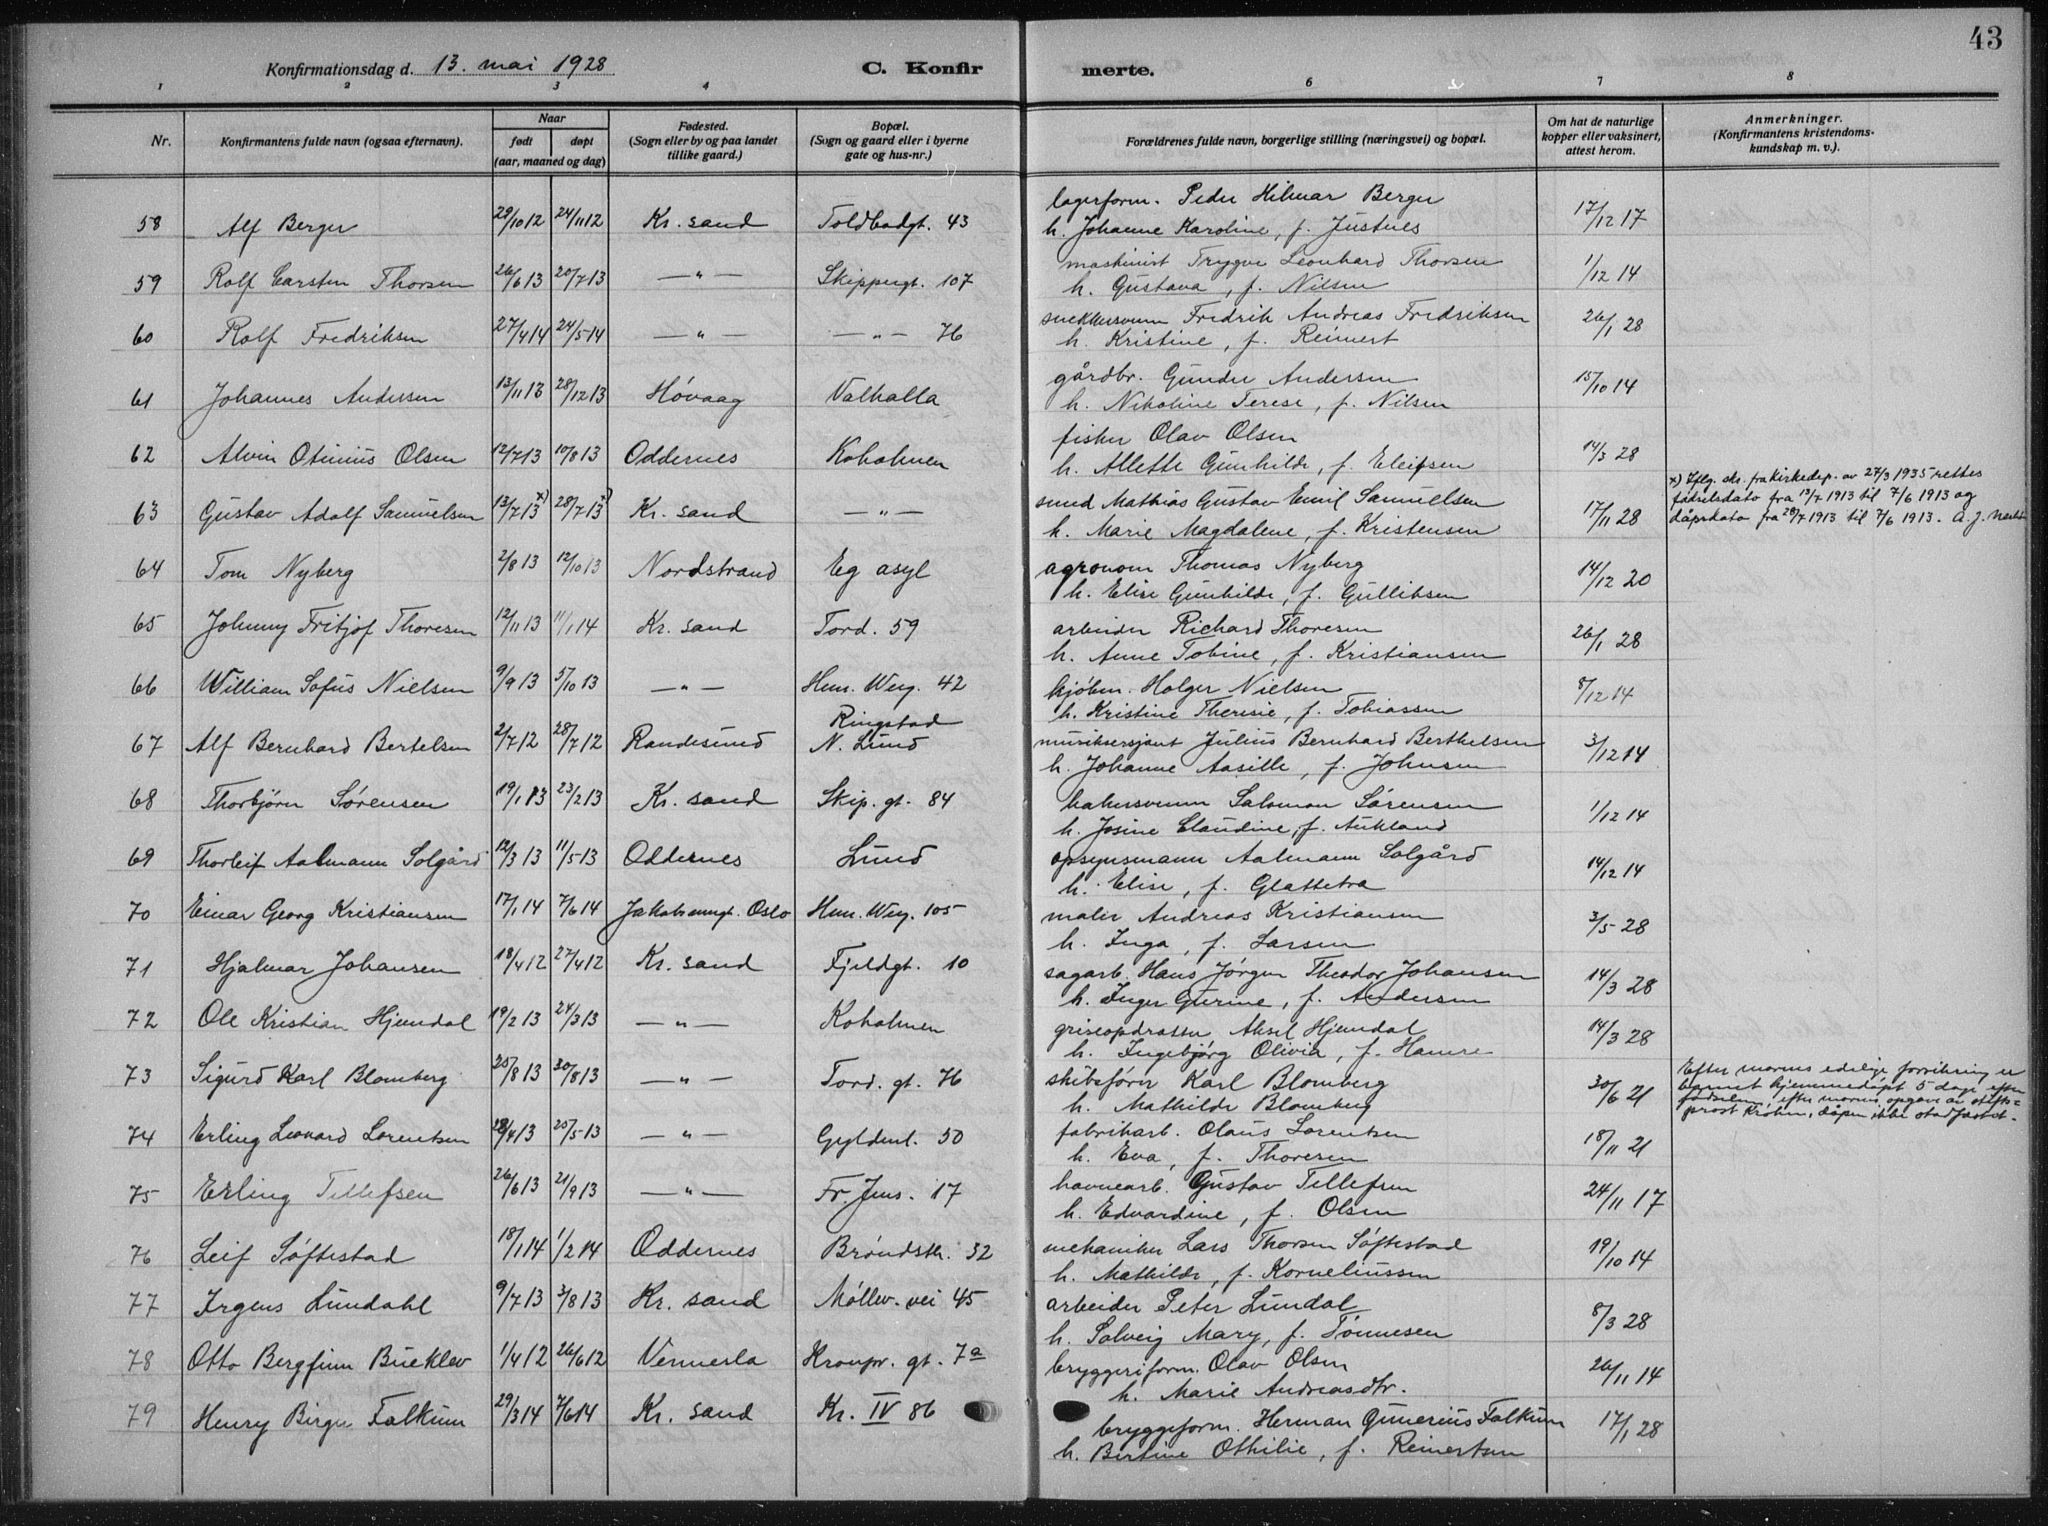 43
Konfirmationsdag d. 13. mai 1928 C. Konfir merte.
1 2 3 4 6 7 8
Nr. Konfirmantens fulde navn (ogsaa efternavn). Naar født døpt (aar, maaned og dag) Fødested. (Sogn eller by og paa landet tillike gaard.) Bopæl. (Sogn og gaard eller i byerne gate og hus-nr.) Forældrenes fulde navn, borgerlige stilling (næringsvei) og bopæl. Om hat de naturlige kopper eller vaksinert, attest herom. Anmerkninger. (Konfirmantens kristendoms-kundskap m. v.).
58 Alf Berger 29/10 12 24/11 12 Kr. sand Toldbodgt. 43 lagerform. Peder Hilmar Berger 17/12 17
h. Johanne Karoline, f. Justnes
59 Rolf Carsten Thorsen 26/6 13 20/7 13 — " — Skippergt. 107 maskinist Trygve Leonhard Thorsen 1/12 14
h. Gustava, f. Nilsen
60 Rolf Fredriksen 27/4 14 24/5 14 — " — — " — 76 snekkersvenn Fredrik Andreas Fredriksen 26/1 28
h. Kristine, f. Reinert
61 Johannes Andersen 13/11 13 28/12 13 Høvaag Valhalla gårdbr. Gunder Andersen 15/10 14
h. Nikoline Terese, f. Nilsen
62 Alvin Otinius Olsen 12/7 13 10/8 13 Oddernes Koholmen fisker Olav Olsen 14/3 28
h. Allette Gunhilde, f. Eleifsen
63 Gustav Adolf Samuelsen 13/7 13 x) 28/7 13 x) Kr. sand — " — smed Mathias Gustav Emil Samuelsen 17/11 28
h. Marie Magdalene, f. Kristensen
x) Iflg. skr. fra Kirkedep. av 27/3 1935 rettes
fødselsdato fra 13/7 1913 til 7/6 1913 og
dåpsdato fra 28/7 1913 til 7/6 1913. A. J.
64 Tom Nyberg 2/8 13 12/10 13 Nordstrand Eg asyl agronom Thomas Nyberg 14/12 20
h. Elise Gunhilde, f. Gulliksen
65 Johnny Fritjof Thoresen 12/11 13 11/1 14 Kr. sand Tord. 59 arbeider Richard Thoresen 26/1 28
h. Anne Tobine, f. Kristiansen
66 William Sofus Nielsen 9/9 13 5/10 13 — " — Hen. Werg. 42 kjøbm. Holger Nielsen 8/12 14
h. Kristine Theresie, f. Tobiassen
67 Alf Bernhard Bertelsen 2/7 12 28/7 12 Randesund Ringstad N. Lund musiksersjant Julius Bernhard Berthelsen 3/12 14
h. Johanne Aasille, f. Johnsen
68 Thorbjørn Sørensen 19/1 13 23/2 13 Kr. sand Skip. gt. 84 bakersvenn Salomon Sørensen 1/12 14
h. Josine Claudine, f. Aukland
69 Thorleif Aalmann Solgård 12/3 13 11/5 13 Oddernes Lund opsynsmann Aalmann Solgård 14/12 14
h. Elise, f. Glattetra
70 Einar Georg Kristiansen 17/1 14 7/6 14 Jakobsmgt. Oslo Hen. Werg. 105 maler Andreas Kristiansen 3/5 28
h. Inga, f. Larsen
71 Hjalmar Johansen 18/4 12 27/4 12 Kr. sand Fjeldgt. 10 sagarb. Hans Jørgen Theodor Johansen 14/3 28
h. Inger Gurine, f. Andersen
72 Ole Kristian Hjemdal 19/2 13 24/3 13 — " — Koholmen griseopdretter Aksel Hjemdal 14/3 28
h. Ingebjørg Olivia, f. Hamre
73 Sigurd Karl Blomberg 25/8 13 30/8 13 — " — Tord. gt. 76 skibsfører Karl Blomberg 30/6 21
h. Mathilde Blomberg
Efter morens edelige forsikring er
barnet hjemmedøpt 5 dage efter
fødselen, efter morens opgave av stifts-
prost Krohn, dåpen ikke stadfæstet.
74 Erling Leonard Lorentsen 28/4 13 25/5 13 — " — Gyldenl. 50 fabrikarb. Olaus Lorentsen 18/11 21
h. Eva, f. Thoresen
75 Erling Tellefsen 26/6 13 21/9 13 — " — Fr. Jens. 17 havnearb. Gustav Tellefsen 24/11 17
h. Edvardine, f. Olsen
76 Leif Søftestad 18/1 14 1/2 14 Oddernes Brøndstr. 32 mekaniker Lars Thorsen Søftestad 19/10 14
h. Mathilde, f. Korneliussen
77 Jrgens Lundahl 9/7 13 3/8 13 Kr. sand Møllev. vei 45 arbeider Peter Lundal 8/3 28
h. Solveig Mary, f. Tønnesen
78 Otto Bergfinn Bueklev 1/4 12 26/6 12 Vennesla Kronpr. gt. 7a bryggeriform. Olav Olsen 26/11 14
h. Marie Andreasdtr.
79 Henry Birger Falkum 29/3 14 7/6 14 Kr. sand Kr. IV 86 bryggeform. Herman Gunerius Falkum 17/1 28
h. Bertine Othilie, f. Reinertsen